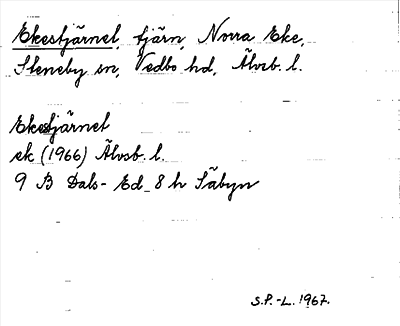 Ekestjärnet, tjärn, Norra Eke,
Steneby sn, Vedbo hd, Älvsb. l.
Ekestjärnet
ek (1966) Älvsb. l.
9 B Dals-Ed 8 h Säbyn
S.P.-L. 1967.